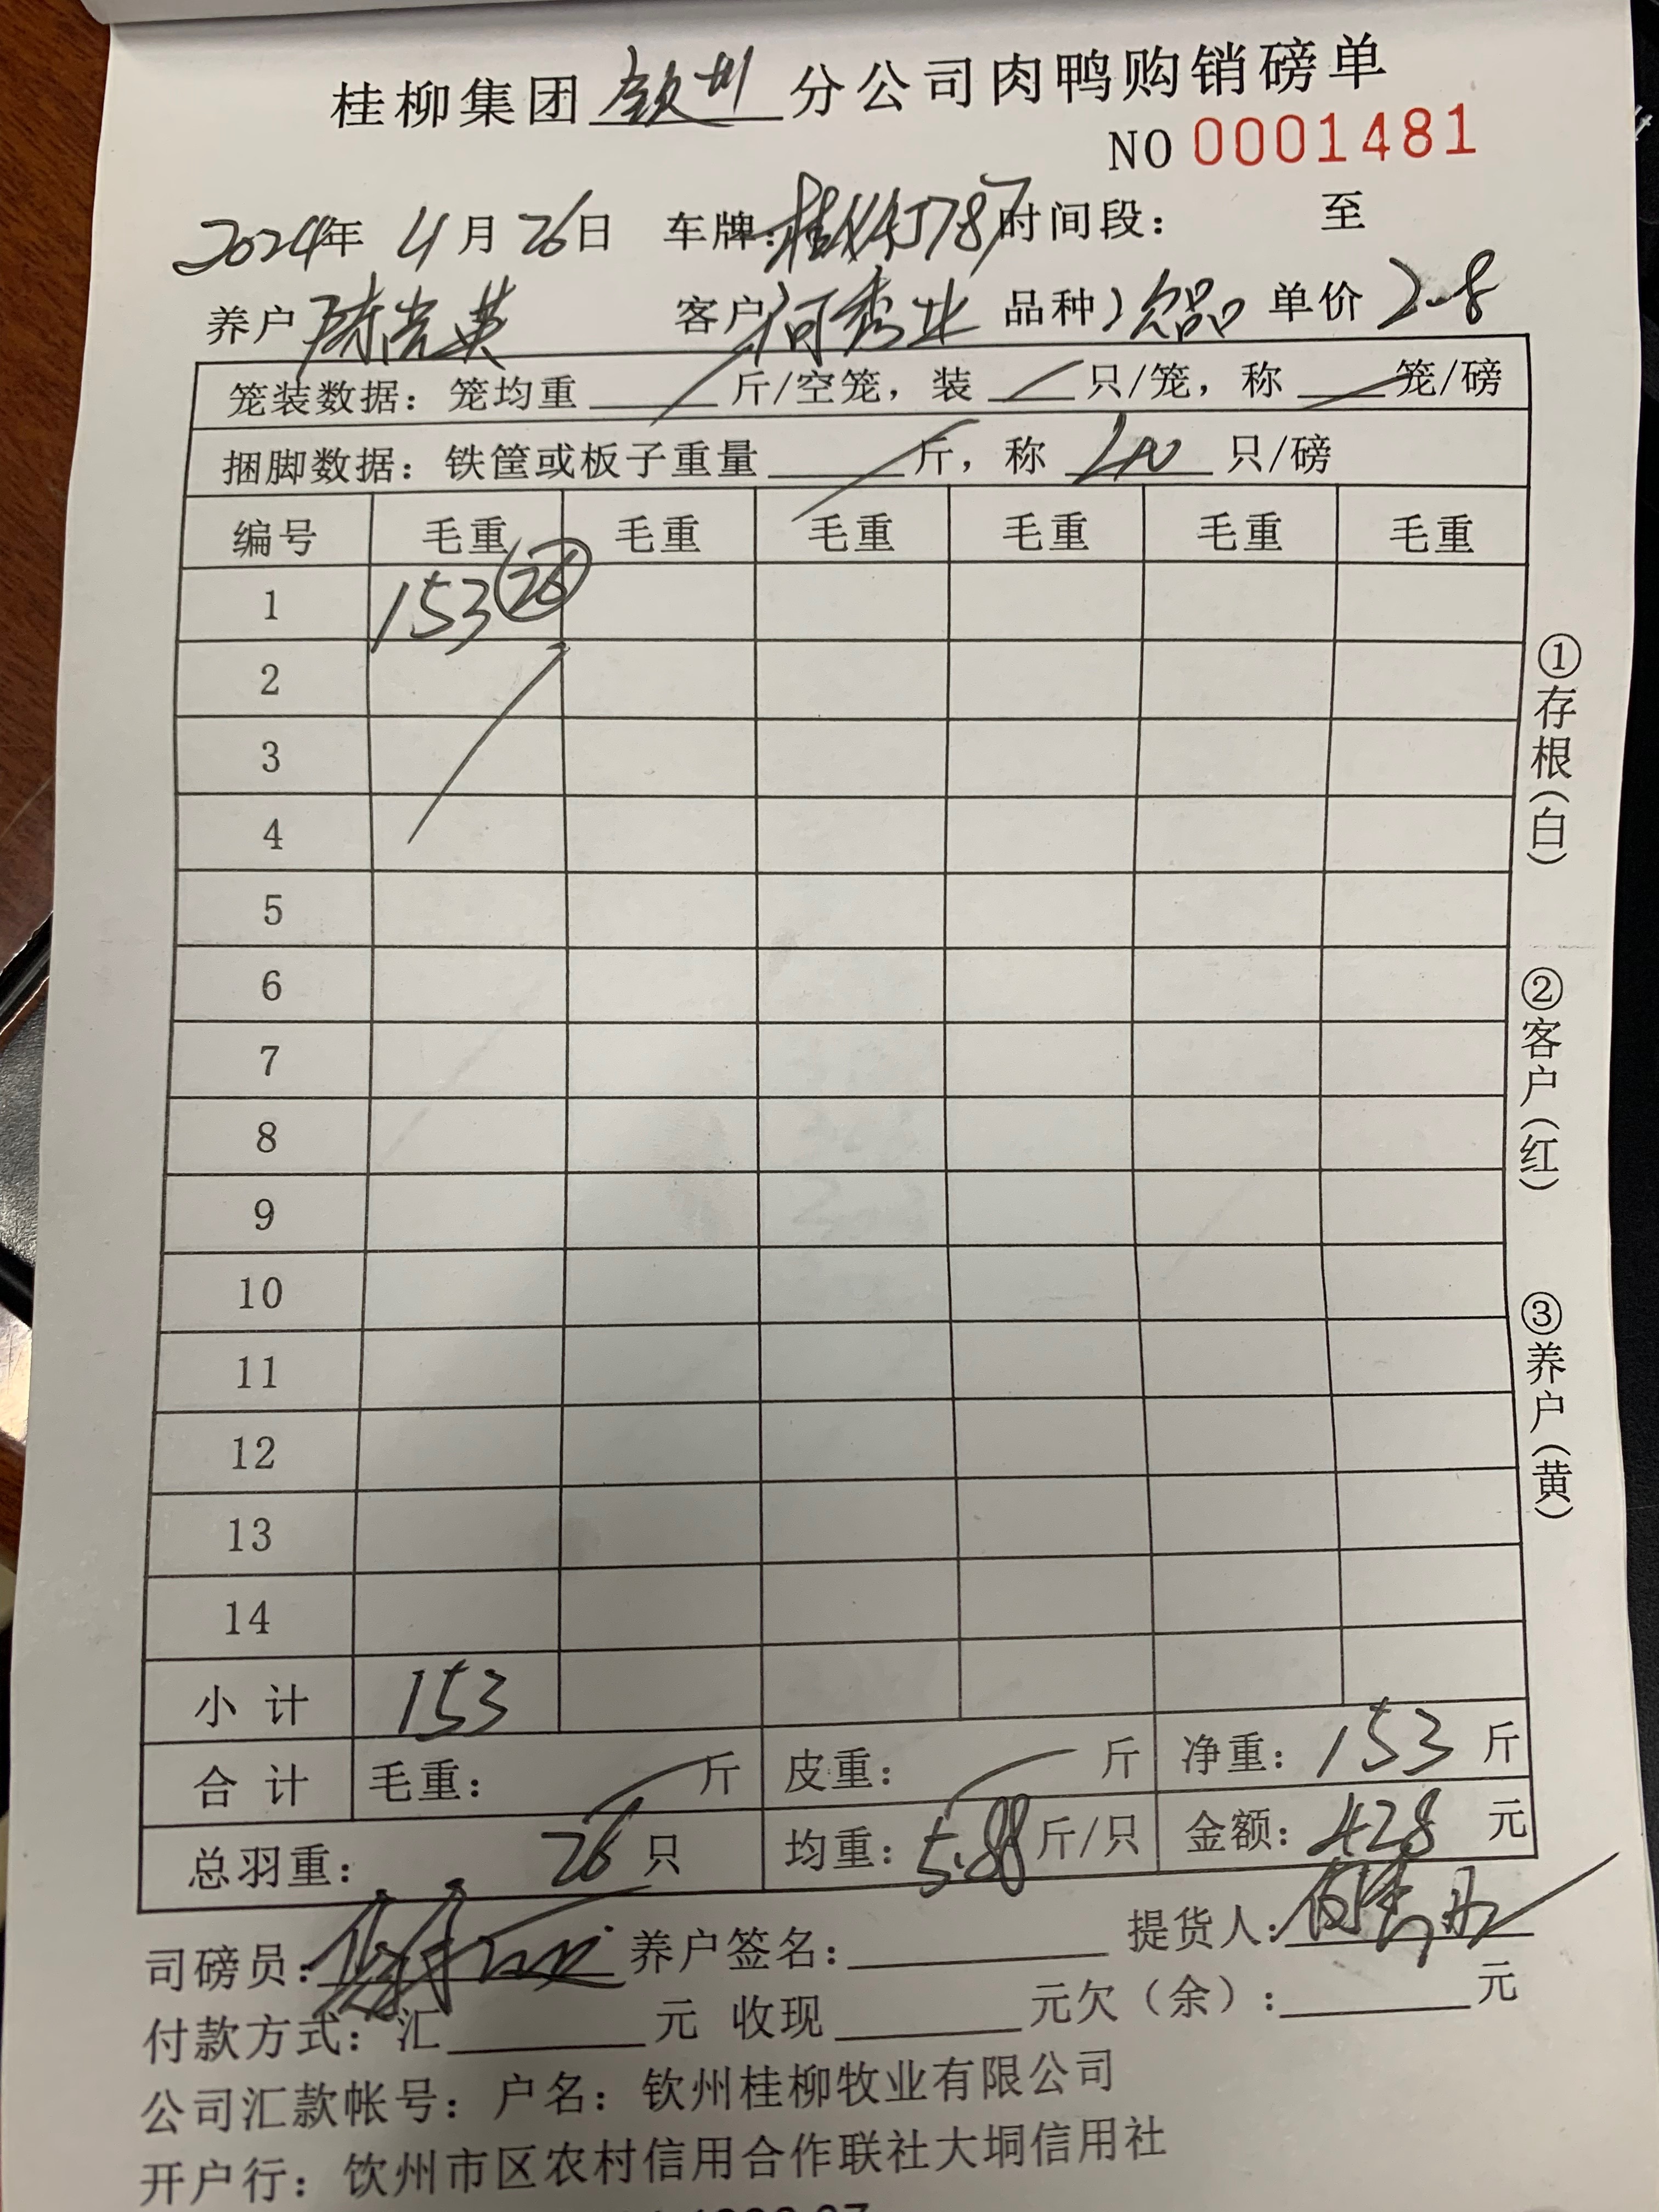 桂柳集团 钦州 分公司肉鸭购销磅单
NO 0001481
2024年 4月 26日 车牌: 时间段: 至
养户 陈光英 客户 何秀业 品种 次品 单价 2.8
笼装数据: 笼均重 斤/空笼, 装 只/笼, 称 笼/磅
捆脚数据: 铁筐或板子重量 斤, 称 40 只/磅
编号 毛重 毛重 毛重 毛重 毛重 毛重
1 153 26
2
3
4
5
6
7
8
9
10
11
12
13
14
小计 153
合计 毛重: 斤 皮重: 斤 净重: 153 斤
总羽重: 26 只 均重: 5.88 斤/只 金额: 428 元
司磅员: 养户签名: 提货人:
付款方式: 汇 元 收现 元欠(余): 元
公司汇款帐号: 户名: 钦州桂柳牧业有限公司
开户行: 钦州市区农村信用合作联社大垌信用社
①存根(白)
②客户(红)
③养户(黄)